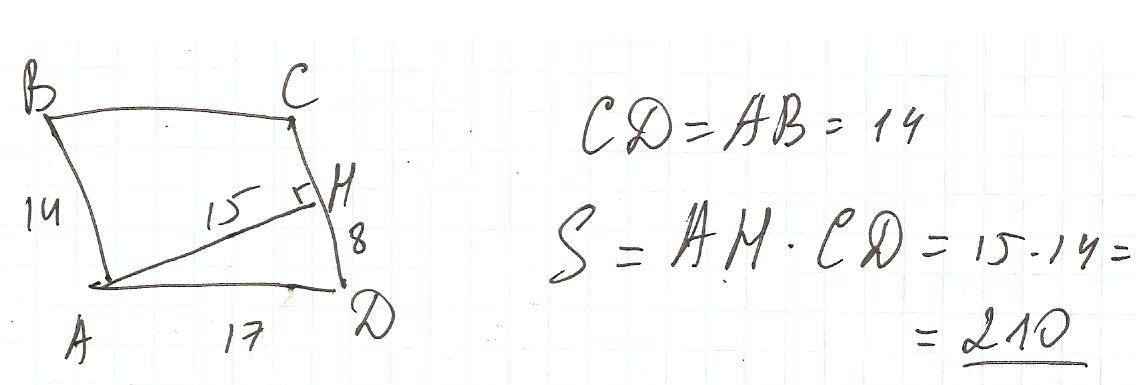 B C
14 15 H
8
A 17 D
CD = AB = 14
S = AH · CD = 15 · 14 =
= 210